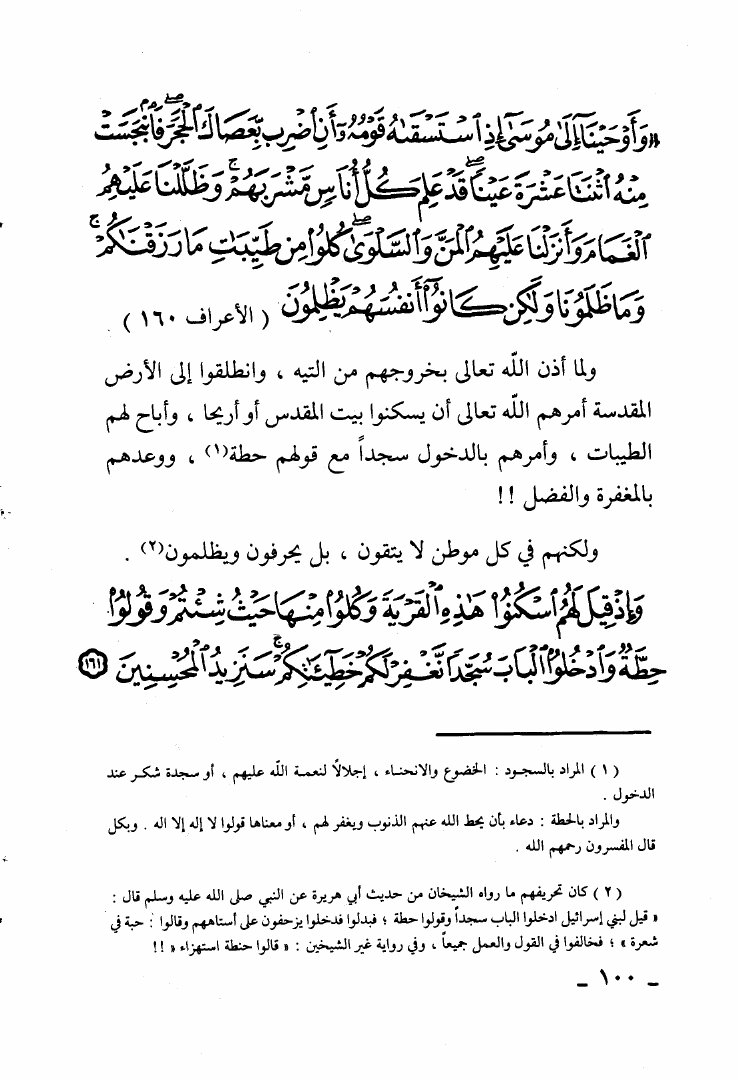 «وَأَوْحَيْنَآ إِلَىٰ مُوسَىٰٓ إِذِ ٱسْتَسْقَىٰهُ قَوْمُهُۥٓ أَنِ ٱضْرِب بِّعَصَاكَ ٱلْحَجَرَ ۖ فَٱنۢبَجَسَتْ
مِنْهُ ٱثْنَتَا عَشْرَةَ عَيْنًا ۖ قَدْ عَلِمَ كُلُّ أُنَاسٍ مَّشْرَبَهُمْ ۚ وَظَلَّلْنَا عَلَيْهِمُ
ٱلْغَمَامَ وَأَنزَلْنَا عَلَيْهِمُ ٱلْمَنَّ وَٱلسَّلْوَىٰ ۖ كُلُوا۟ مِن طَيِّبَٰتِ مَا رَزَقْنَٰكُمْ ۚ
وَمَا ظَلَمُونَا وَلَٰكِن كَانُوٓا۟ أَنفُسَهُمْ يَظْلِمُونَ ( الأعراف ١٦٠ ) .
ولما أذن الله تعالى بخروجهم من التيه ، وانطلقوا إلى الأرض
المقدسة أمرهم الله تعالى أن يسكنوا بيت المقدس أو أريحا ، وأباح لهم
الطيبات ، وأمرهم بالدخول سجداً مع قولهم حطة(١) ، ووعدهم
بالمغفرة والفضل !!
ولكنهم في كل موطن لا يتقون ، بل يحرفون ويظلمون(٢) .
وَإِذْ قِيلَ لَهُمُ ٱسْكُنُوا۟ هَٰذِهِ ٱلْقَرْيَةَ وَكُلُوا۟ مِنْهَا حَيْثُ شِئْتُمْ وَقُولُوا۟
حِطَّةٌ وَٱدْخُلُوا۟ ٱلْبَابَ سُجَّدًا نَّغْفِرْ لَكُمْ خَطِيٓـَٰٔتِكُمْ ۚ سَنَزِيدُ ٱلْمُحْسِنِينَ ١٦١
( ١ ) المراد بالسجود : الخضوع والانحناء ، إجلالًا لنعمة الله عليهم ، أو سجدة شكر عند
الدخول .
والمراد بالحطة : دعاء بأن يحط الله عنهم الذنوب ويغفر لهم ، أو معناها قولوا لا إله إلا اله . وبكل
قال المفسرون رحمهم الله .
( ٢ ) كان تحريفهم ما رواه الشيخان من حديث أبي هريرة عن النبي صلى الله عليه وسلم قال :
« قيل لبني إسرائيل ادخلوا الباب سجداً وقولوا حطة ؛ فبدلوا فدخلوا يزحفون على أستاههم وقالوا : حبة في
شعرة » ؛ فخالفوا في القول والعمل جميعاً ، وفي رواية غير الشيخين : « قالوا حنطة استهزاء » !!
- ١٠٠ -